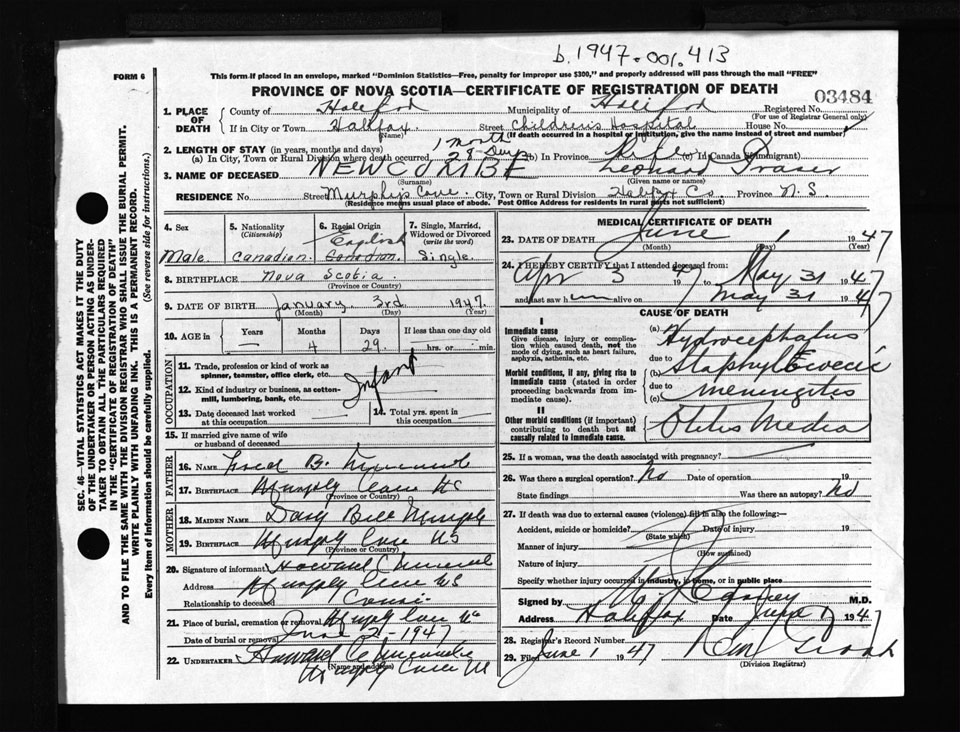 b. 1947-001.413
FORM 6
This form if placed in an envelope, marked "Dominion Statistics—Free, penalty for improper use $300," and properly addressed will pass through the mail "FREE"
PROVINCE OF NOVA SCOTIA—CERTIFICATE OF REGISTRATION OF DEATH
03484
1. PLACE OF DEATH
County of Halifax Municipality of Halifax Registered No.
(For use of Registrar General only)
If in City or Town Halifax Street Children's Hospital House No.
(Name) (If death occurred in a hospital or institution, give the name instead of street and number)
2. LENGTH OF STAY (in years, months and days)
(a) In City, Town or Rural Division where death occurred 1 month 28 Days (b) In Province Life (c) In Canada (if immigrant)
3. NAME OF DECEASED NEWCOMBE Leonard Fraser
(Surname) (Given name or names)
RESIDENCE No. Street Murphy's Cove City, Town or Rural Division Halifax Co. Province N. S.
(Residence means usual place of abode. Post Office Address for residents in rural parts not sufficient)
4. Sex
Male
5. Nationality (Citizenship)
Canadian
6. Racial Origin
English
Canadian
7. Single, Married, Widowed or Divorced (write the word)
Single
8. BIRTHPLACE Nova Scotia
(Province or Country)
9. DATE OF BIRTH January 3rd 1947
(Month) (Day) (Year)
10. AGE in Years Months Days If less than one day old
— 4 29 hrs. or min.
OCCUPATION
11. Trade, profession or kind of work as spinner, teamster, office clerk, etc.
Infant
12. Kind of industry or business, as cotton-mill, lumbering, bank, etc.
13. Date deceased last worked at this occupation
14. Total yrs. spent in this occupation
15. If married give name of wife or husband of deceased
FATHER
16. NAME B.
17. BIRTHPLACE Murphy Cove NS
(Province or Country)
MOTHER
18. MAIDEN NAME Daisy Bell Murphy
19. BIRTHPLACE Murphy Cove NS
(Province or Country)
20. Signature of informant Howard
Address Murphy Cove NS
Relationship to deceased
21. Place of burial, cremation or removal Murphy Cove NS
Date of burial or removal June 2-1947
22. UNDERTAKER Howard
(Name and address)
Murphy Cove NS
MEDICAL CERTIFICATE OF DEATH
23. DATE OF DEATH June 1 1947
(Month) (Day) (Year)
24. I HEREBY CERTIFY that I attended deceased from:
Apr 3 1947 to May 31 1947
and last saw him alive on May 31 1947
CAUSE OF DEATH
I
Immediate cause
Give disease, injury or complication which caused death, not the mode of dying, such as heart failure, asphyxia, asthenia, etc.
(a) Hydrocephalus
due to
Morbid conditions, if any, giving rise to immediate cause (stated in order proceeding backwards from immediate cause).
(b)
due to
(c) meningitis
II
Other morbid conditions (if important) contributing to death but not causally related to immediate cause.
Otitis Media
25. If a woman, was the death associated with pregnancy?
26. Was there a surgical operation? No Date of operation 19
State findings Was there an autopsy? No
27. If death was due to external causes (violence) fill in also the following:—
Accident, suicide or homicide? Date of injury 19
(State which)
Manner of injury
(How sustained)
Nature of injury
Specify whether injury occurred in industry, in home, or in public place
Signed by M.D.
Address Halifax Date June 1947
28. Registrar's Record Number
29. Filed June 1 1947
(Division Registrar)
SEC. 46—VITAL STATISTICS ACT MAKES IT THE DUTY
OF THE UNDERTAKER OR PERSON ACTING AS UNDER-
TAKER TO OBTAIN ALL THE PARTICULARS REQUIRED
IN THE "CERTIFICATE OF REGISTRATION OF DEATH"
AND TO FILE THE SAME WITH THE DIVISION REGISTRAR WHO SHALL ISSUE THE BURIAL PERMIT.
WRITE PLAINLY WITH UNFADING INK. THIS IS A PERMANENT RECORD.
Every item of information should be carefully supplied. (See reverse side for instructions.)